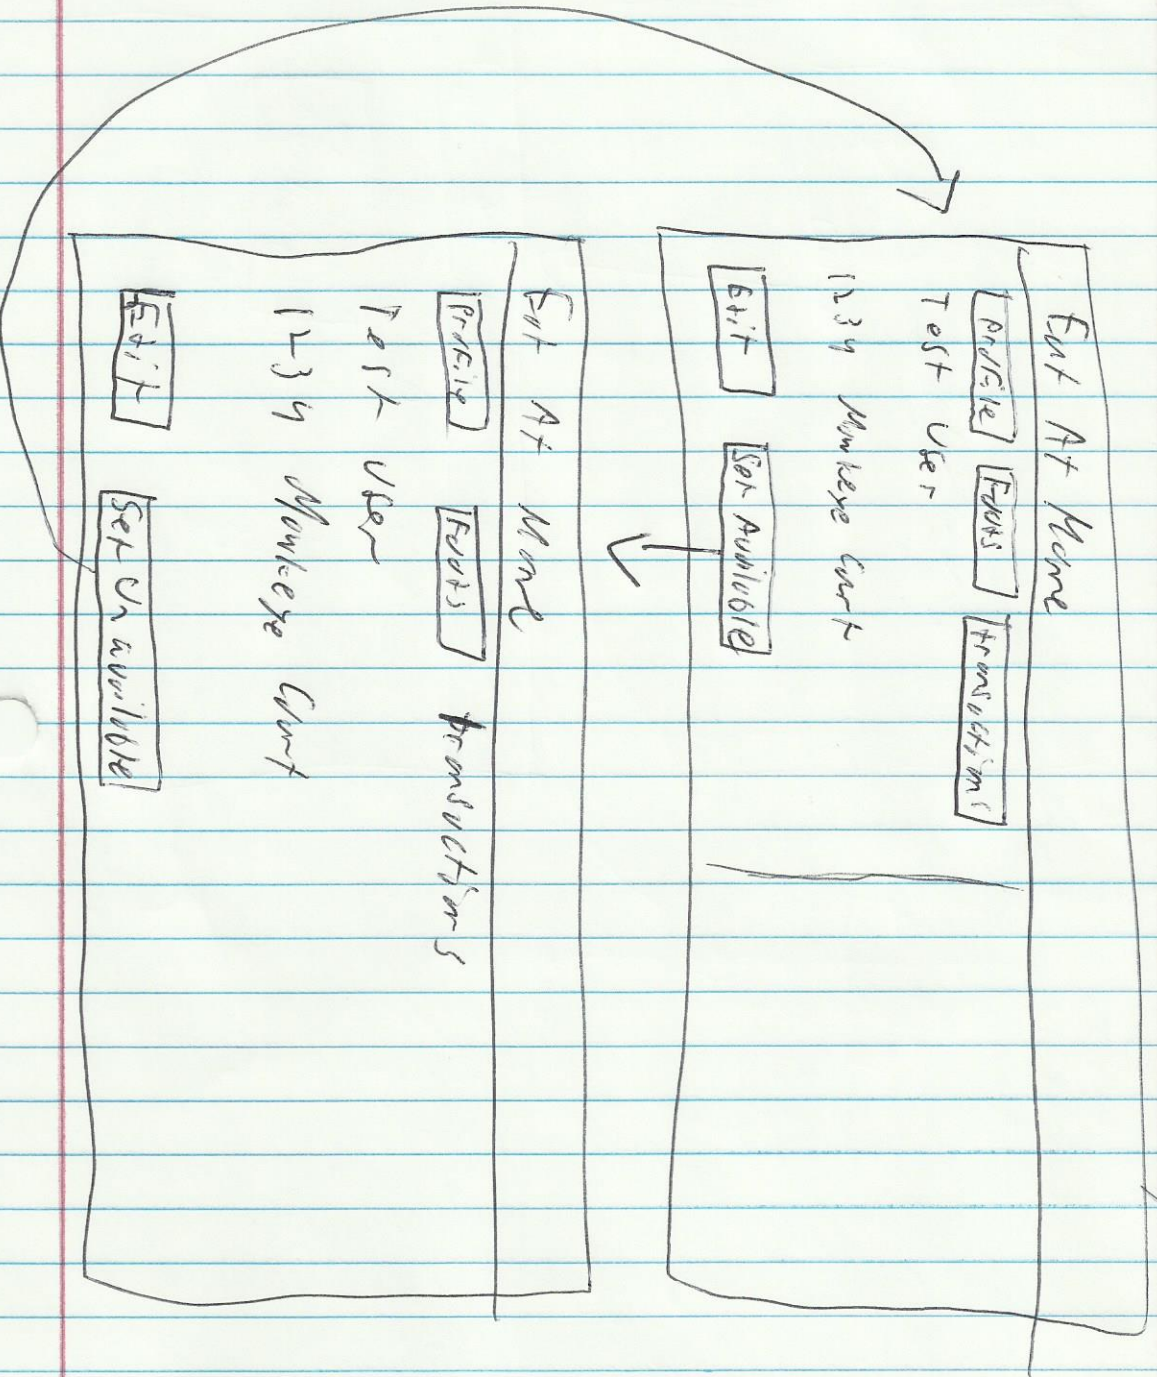 Eat At Mome
Profile Foods transactions
Test User
1234 Monkeye Curt
Edit Set Available
Eat At Mome
Profile Foods transactions
Test User
1234 Monkeye Curt
Edit Set Unavailable